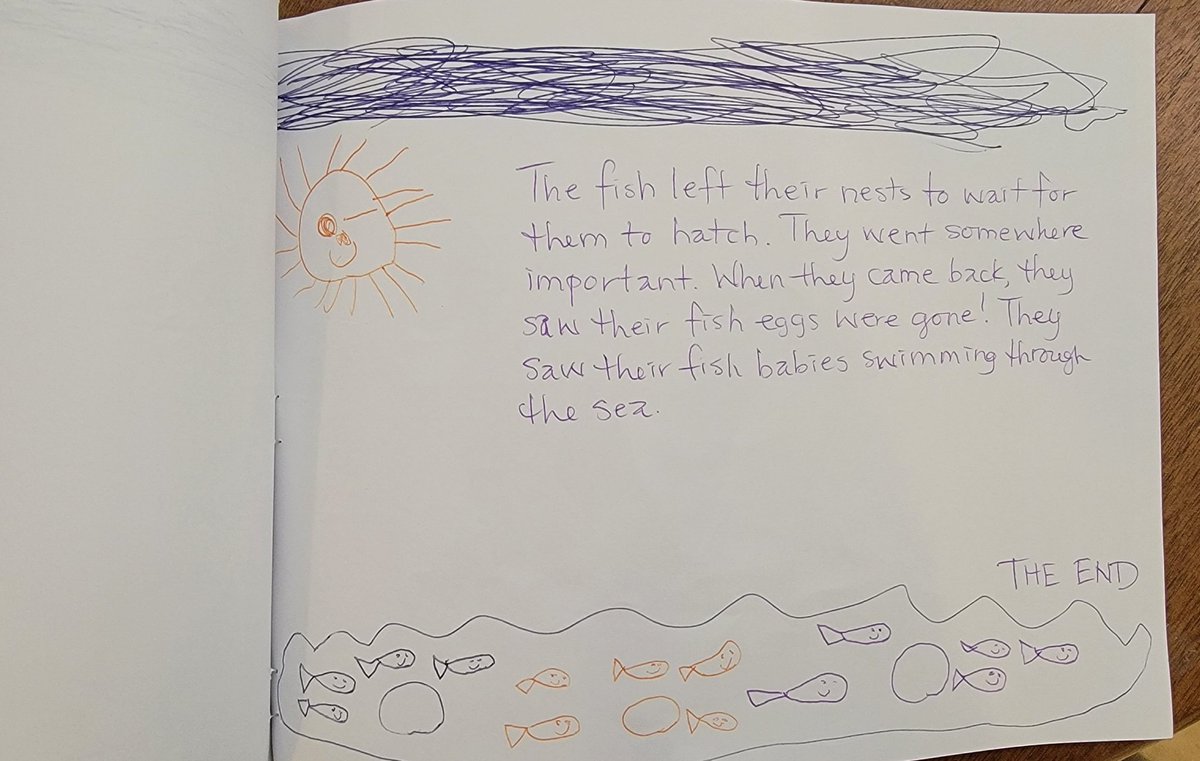 The fish left their nests to wait for
them to hatch. They went somewhere
important. When they came back, they
saw their fish eggs were gone! They
saw their fish babies swimming through
the sea.
THE END